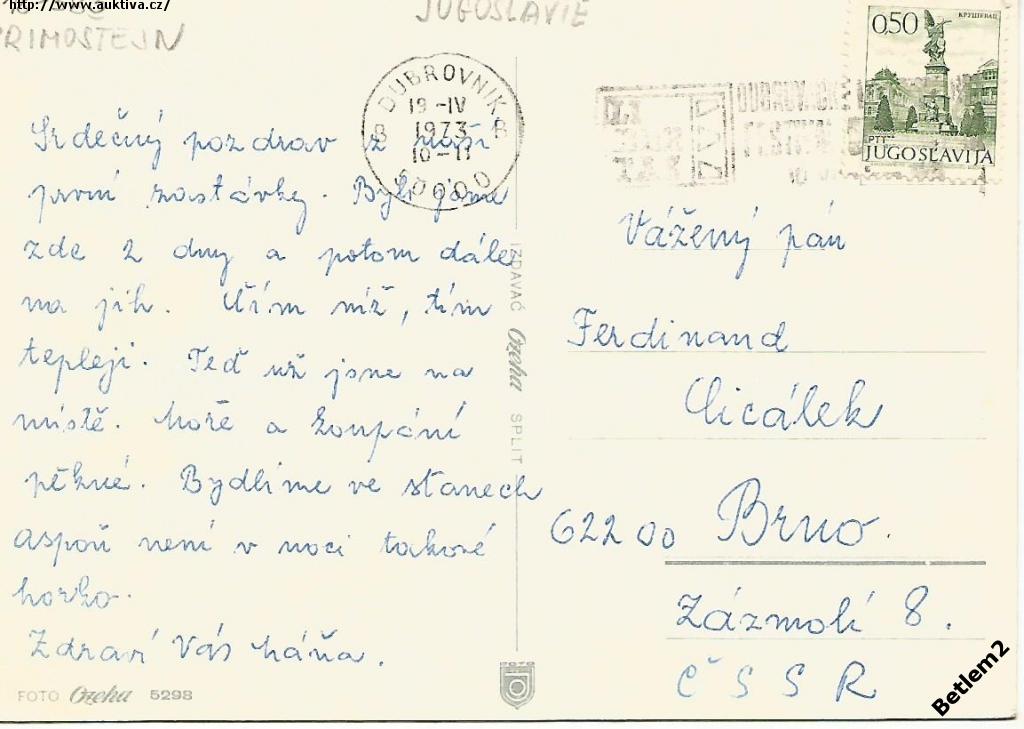 http://www.auktiva.cz/
PRIMOSTEJN
JUGOSLAVIE
DUBROVNIK
19-IV
1973
10-11
B B
50000
0,50
КРУШЕВАЦ
PTT
JUGOSLAVIJA
Srdečný pozdrav z naší
první zastávky. Byli jsme
zde 2 dny a potom dále
na jih. Čím níž, tím
tepleji. Teď už jsme na
místě. Moře a koupání
pěkné. Bydlíme ve stanech
aspoň není v noci takové
horko.
Zdraví Vás Háňa.
IZDAVAČ Ozeha SPLIT
Vážený pán
Ferdinand
Cicálek
62200 Brno.
Zázmolí 8.
ČSSR
FOTO Ozeha 5298
Betlem2